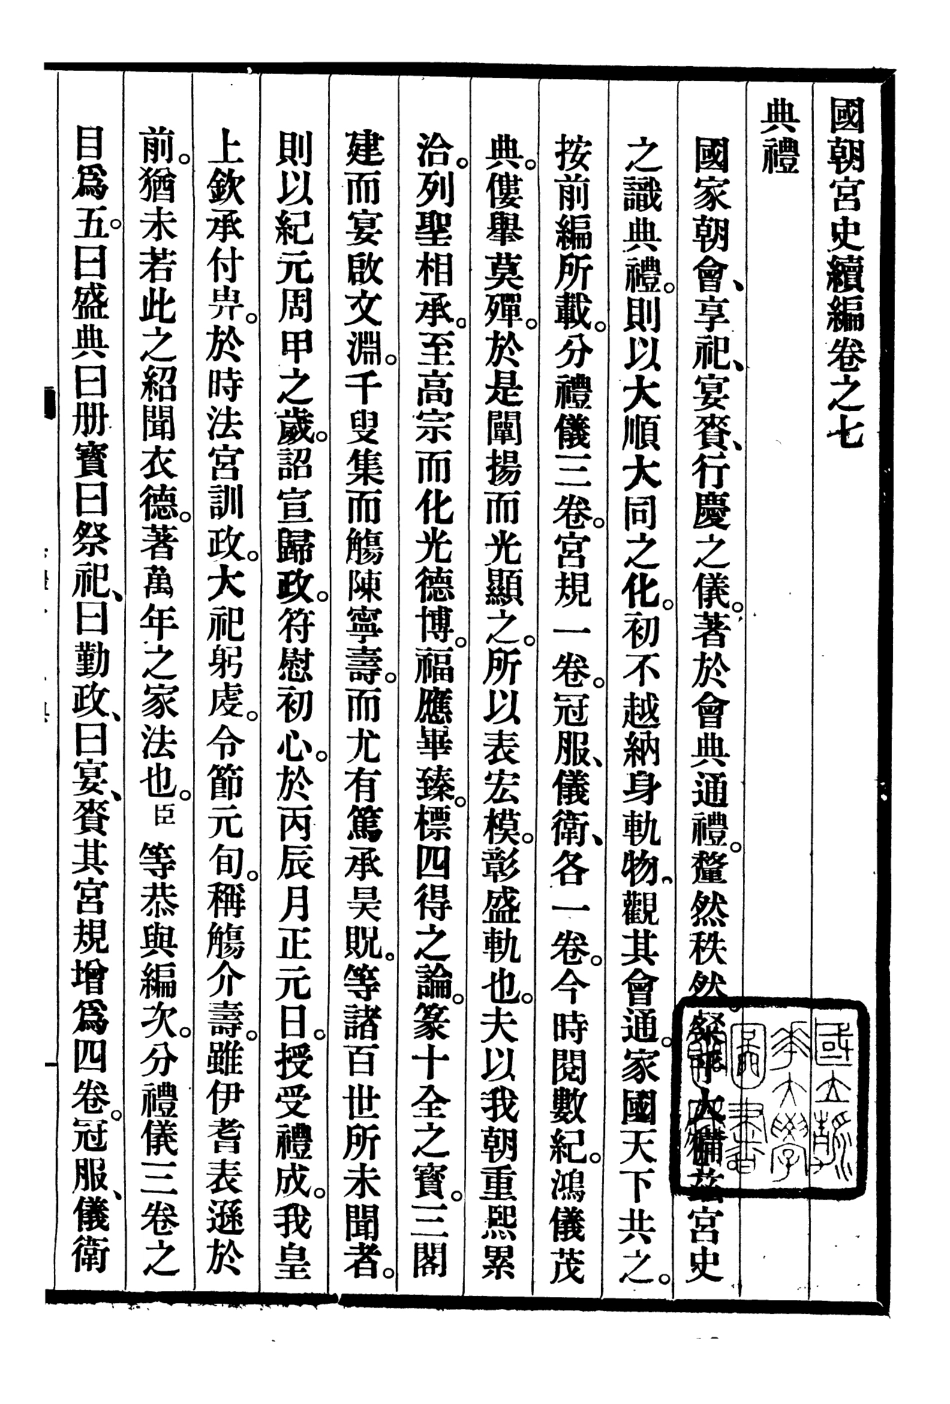 國朝宮史續編卷之七
典禮
國家朝會、享祀、宴賚、行慶之儀。著於會典通禮。釐然秩然。粲乎大備。茲宮史
之識典禮。則以大順大同之化。初不越納身軌物、觀其會通。家國天下共之。
按前編所載。分禮儀三卷。宮規一卷。冠服、儀衛、各一卷。今時閱數紀。鴻儀茂
典。僂舉莫殫。於是闡揚而光顯之。所以表宏模。彰盛軌也。夫以我朝重熙累
洽。列聖相承。至高宗而化光德博。福應畢臻。標四得之論。篆十全之寶。三閣
建而宴啟文淵。千叟集而觴陳寧壽。而尤有篤承昊貺。等諸百世所未聞者。
則以紀元周甲之歲。詔宣歸政。符慰初心。於丙辰月正元日。授受禮成。我皇
上欽承付畀。於時法宮訓政。大祀躬虔。令節元旬。稱觴介壽。雖伊耆表遜於
前。猶未若此之紹聞衣德。著萬年之家法也。臣等恭與編次。分禮儀三卷之
目爲五。曰盛典曰册寶曰祭祀、曰勤政、曰宴、賚其宮規增爲四卷。冠服、儀衛
國立清華大學圖書館